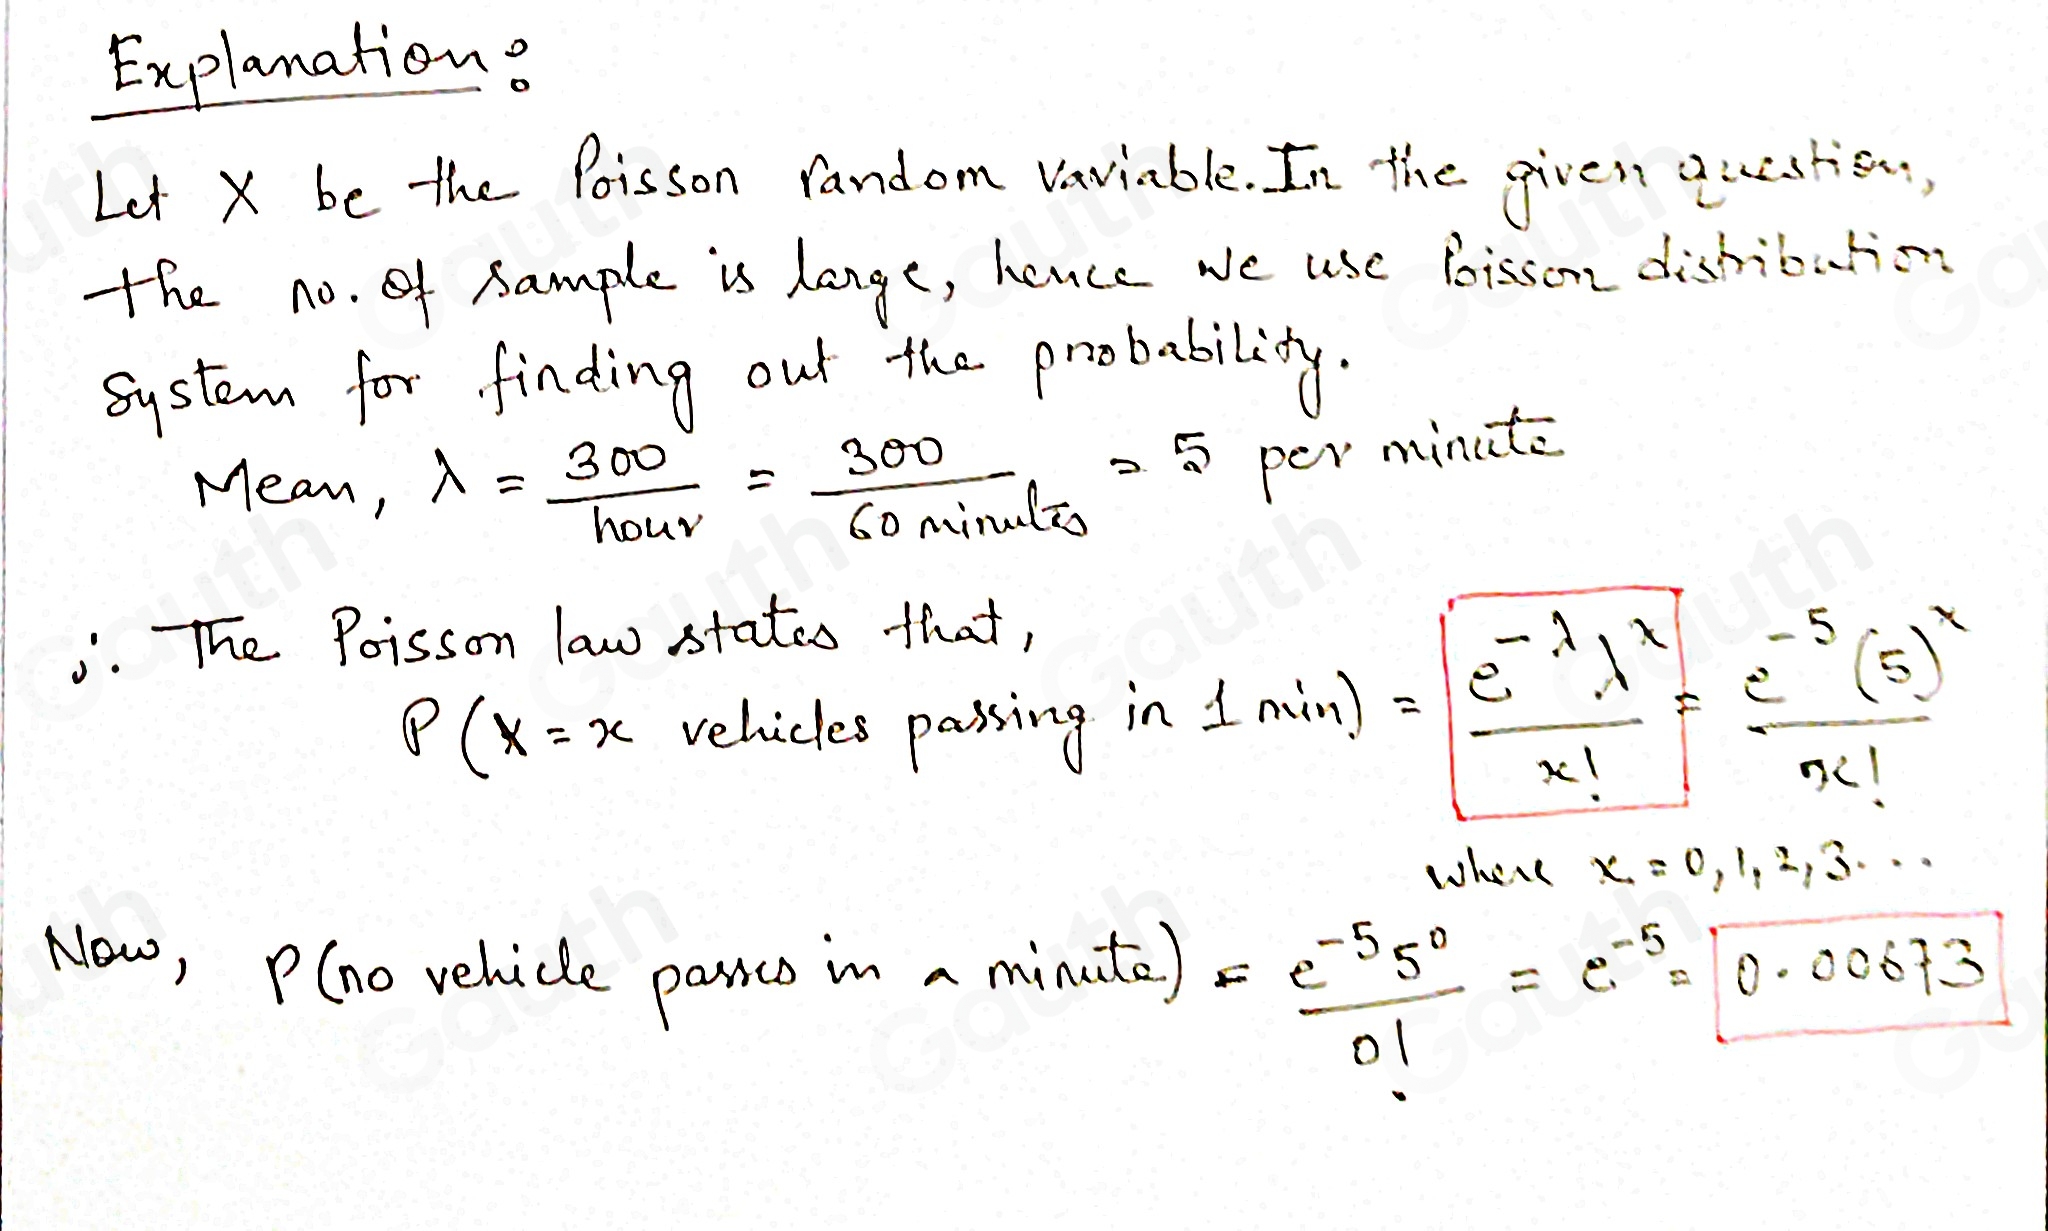 Explanation:
Let X be the Poisson random variable. In the given question,
the no. of sample is large, hence we use Poisson distribution
system for finding out the probability.
Mean, λ = 300/hour = 300/60 minutes = 5 per minute
∴ The Poisson law states that,
P(X = x vehicles passing in 1 min) = e^-λ λ^x / x! = e^-5 (5)^x / x!
where x = 0, 1, 2, 3...
Now, P(no vehicle passes in a minute) = e^-5 5^0 / 0! = e^-5 = 0.00673